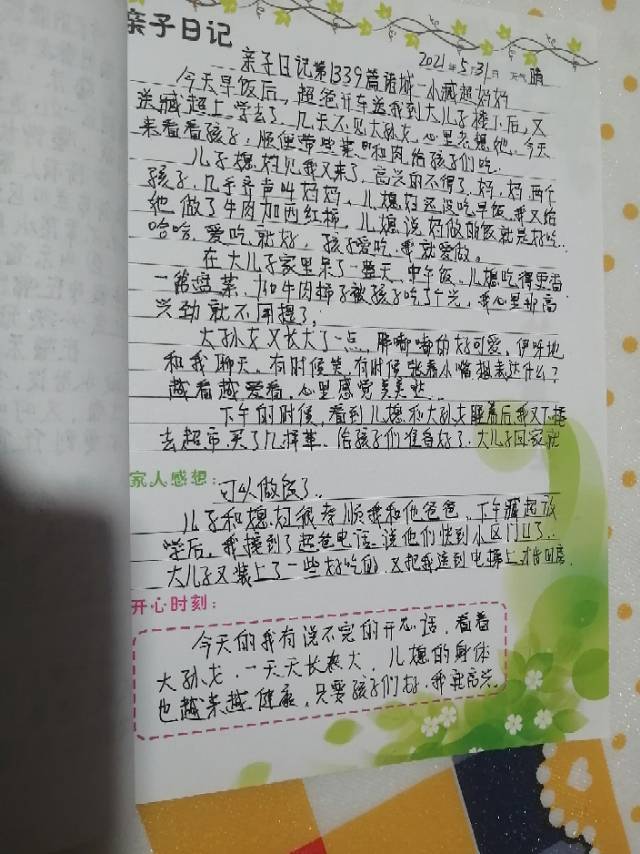 亲子日记
2021年5月31日 天气 晴
亲子日记第1339篇诸城 小臧超妈妈
今天早饭后,超爸开车送我到大儿子楼下后,又
送臧超上学去了,几天不见大孙女,心里老想她,今天
来看看孩子,顺便带些菜和肉给孩子们吃.
儿子媳妇见我又来了,高兴的不得了,妈,妈,两个
孩子,几乎齐声叫妈妈,儿媳妇还没吃早饭,我又给
她做了牛肉加西红柿,儿媳说妈做的饭就是好吃..
哈哈,爱吃就好,孩子爱吃,我就爱做。
在大儿子家里呆了一整天,中午饭,儿媳吃得更香
一整盘菜,加牛肉柿子被孩子吃了个光,我心里那高
兴劲就不用提了,
大孙女又长大了一点,胖嘟嘟的太好可爱,伊呀地
和我聊天,有时候笑,有时候张着小嘴想表达什么?
越看越爱看,心里感觉真美
下午的时候,看到儿媳和大孙女睡着后,我又下楼
去超市,买了几样菜,给孩子们准备好了,大儿子回家就
家人感想:可以做饭了..
儿子和媳妇很孝顺我和他爸爸,下午臧超放
学后,我接到了超爸电话,说他们快到小区门口了..
大儿子又装上了一些好吃的,又把我送到电梯上才回房.
开心时刻:
今天的我有说不完的开心话,看着
大孙女,一天天长大,儿媳的身体
也越来越健康,只要孩子们好,我就高兴.